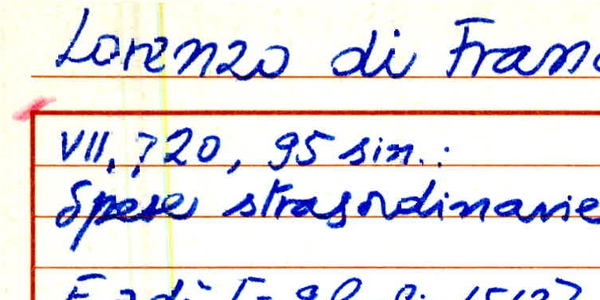 Lorenzo di Fran
VII, 720, 95 sin.:
Spese straordinarie